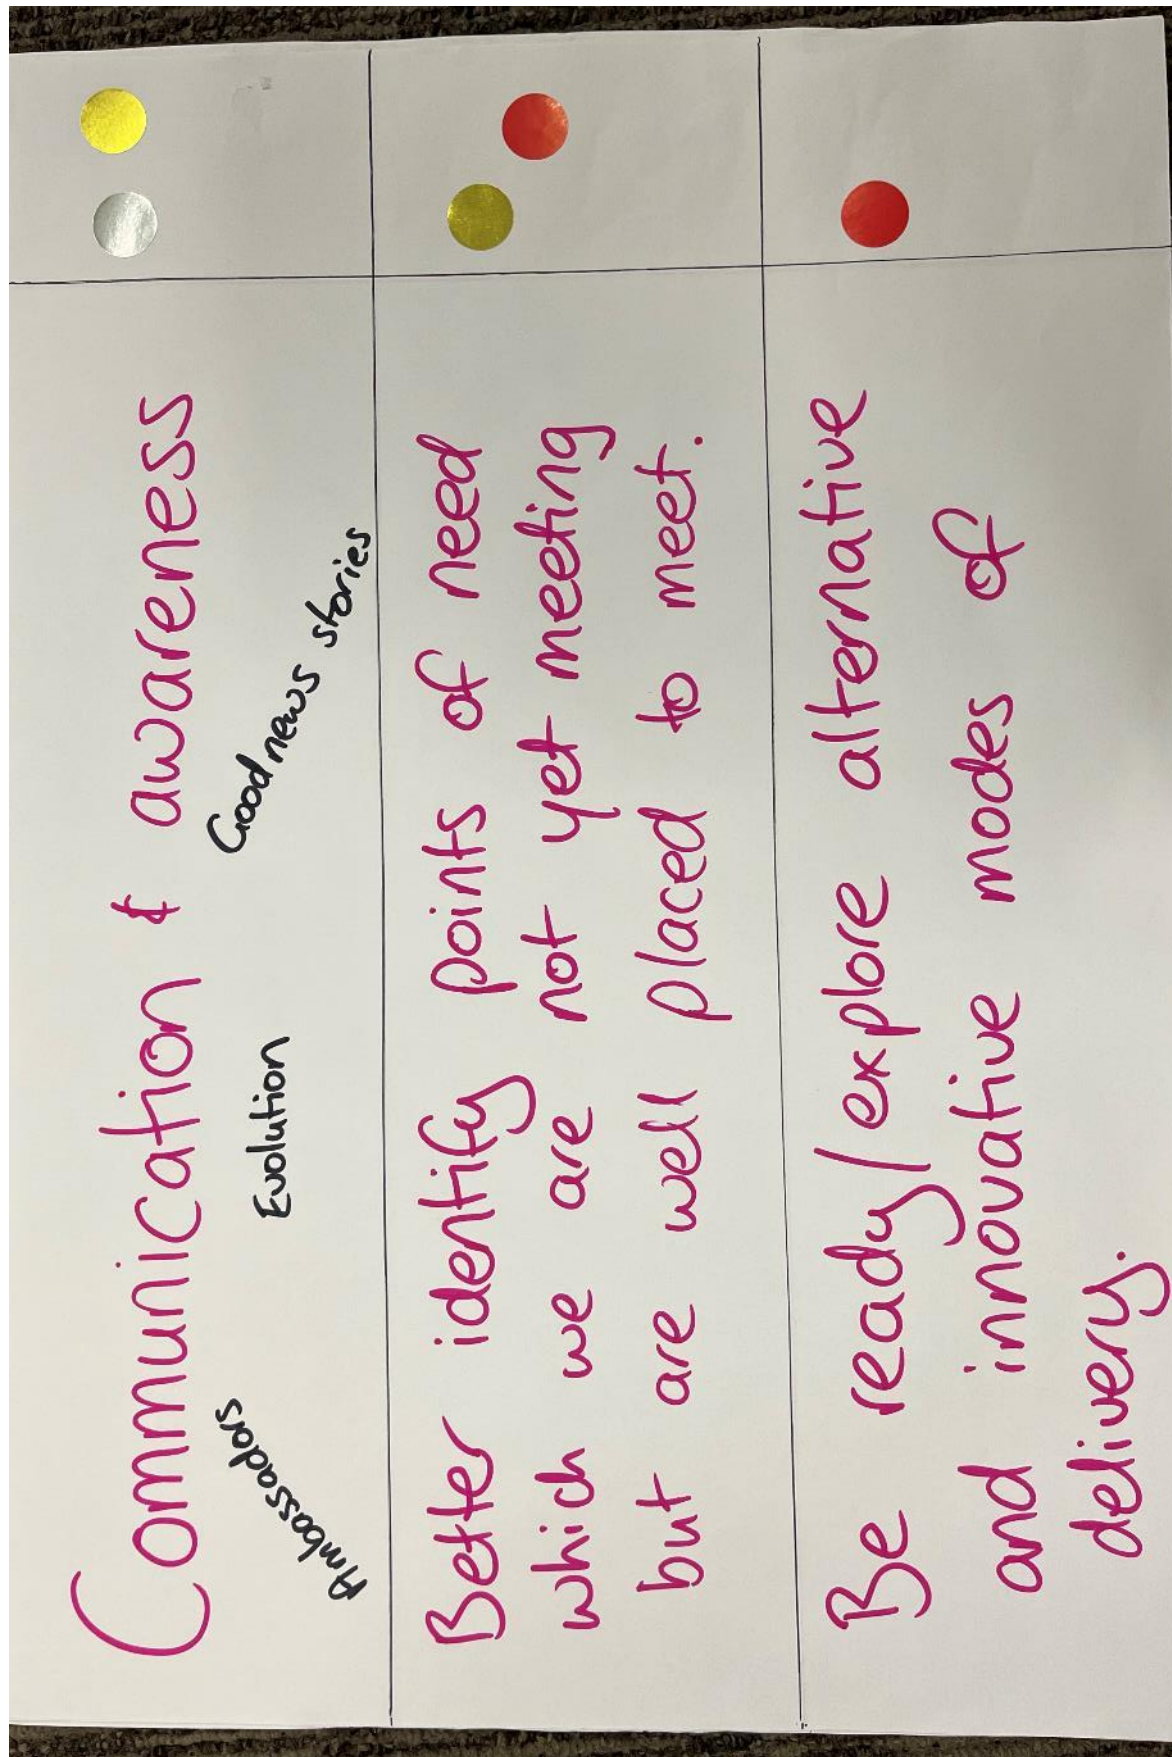 Communication & awareness
Ambassadors
Evolution
Good news stories
Better identify points of need
which we are not yet meeting
but are well placed to meet.
Be ready/explore alternative
and innovative modes of
delivery.